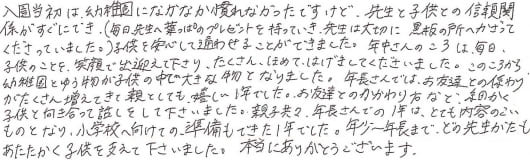 入園当初は、幼稚園になかなか慣れなかったですけど、先生と子供との信頼関
係がすぐにでき、(毎日先生へ葉っぱのプレゼントを持っていき、先生は大切に 黒板の所へかざって
くださっていました。)子供を安心して通わせることができました。年中さんのころは、毎日、
子供のことを、笑顔で出迎えて下さり、たくさん、ほめて、はげましてくださいました。このころから
幼稚園とゆう物が子供の中で大きな物となりました。年長さんでは、お友達との係わり
がたくさん増えてきて親としても、嬉しい1年でした。お友達とのかかわり方など、細かく
子供と向き合って話しをして下さいました。親子共々、年長さんでの1年は、とても内容のこい
ものとなり、小学校へ向けての準備もできた1年でした。年少〜年長まで、どの先生がたも
あたたかく子供を支えて下さいました。本当にありがとうございます。